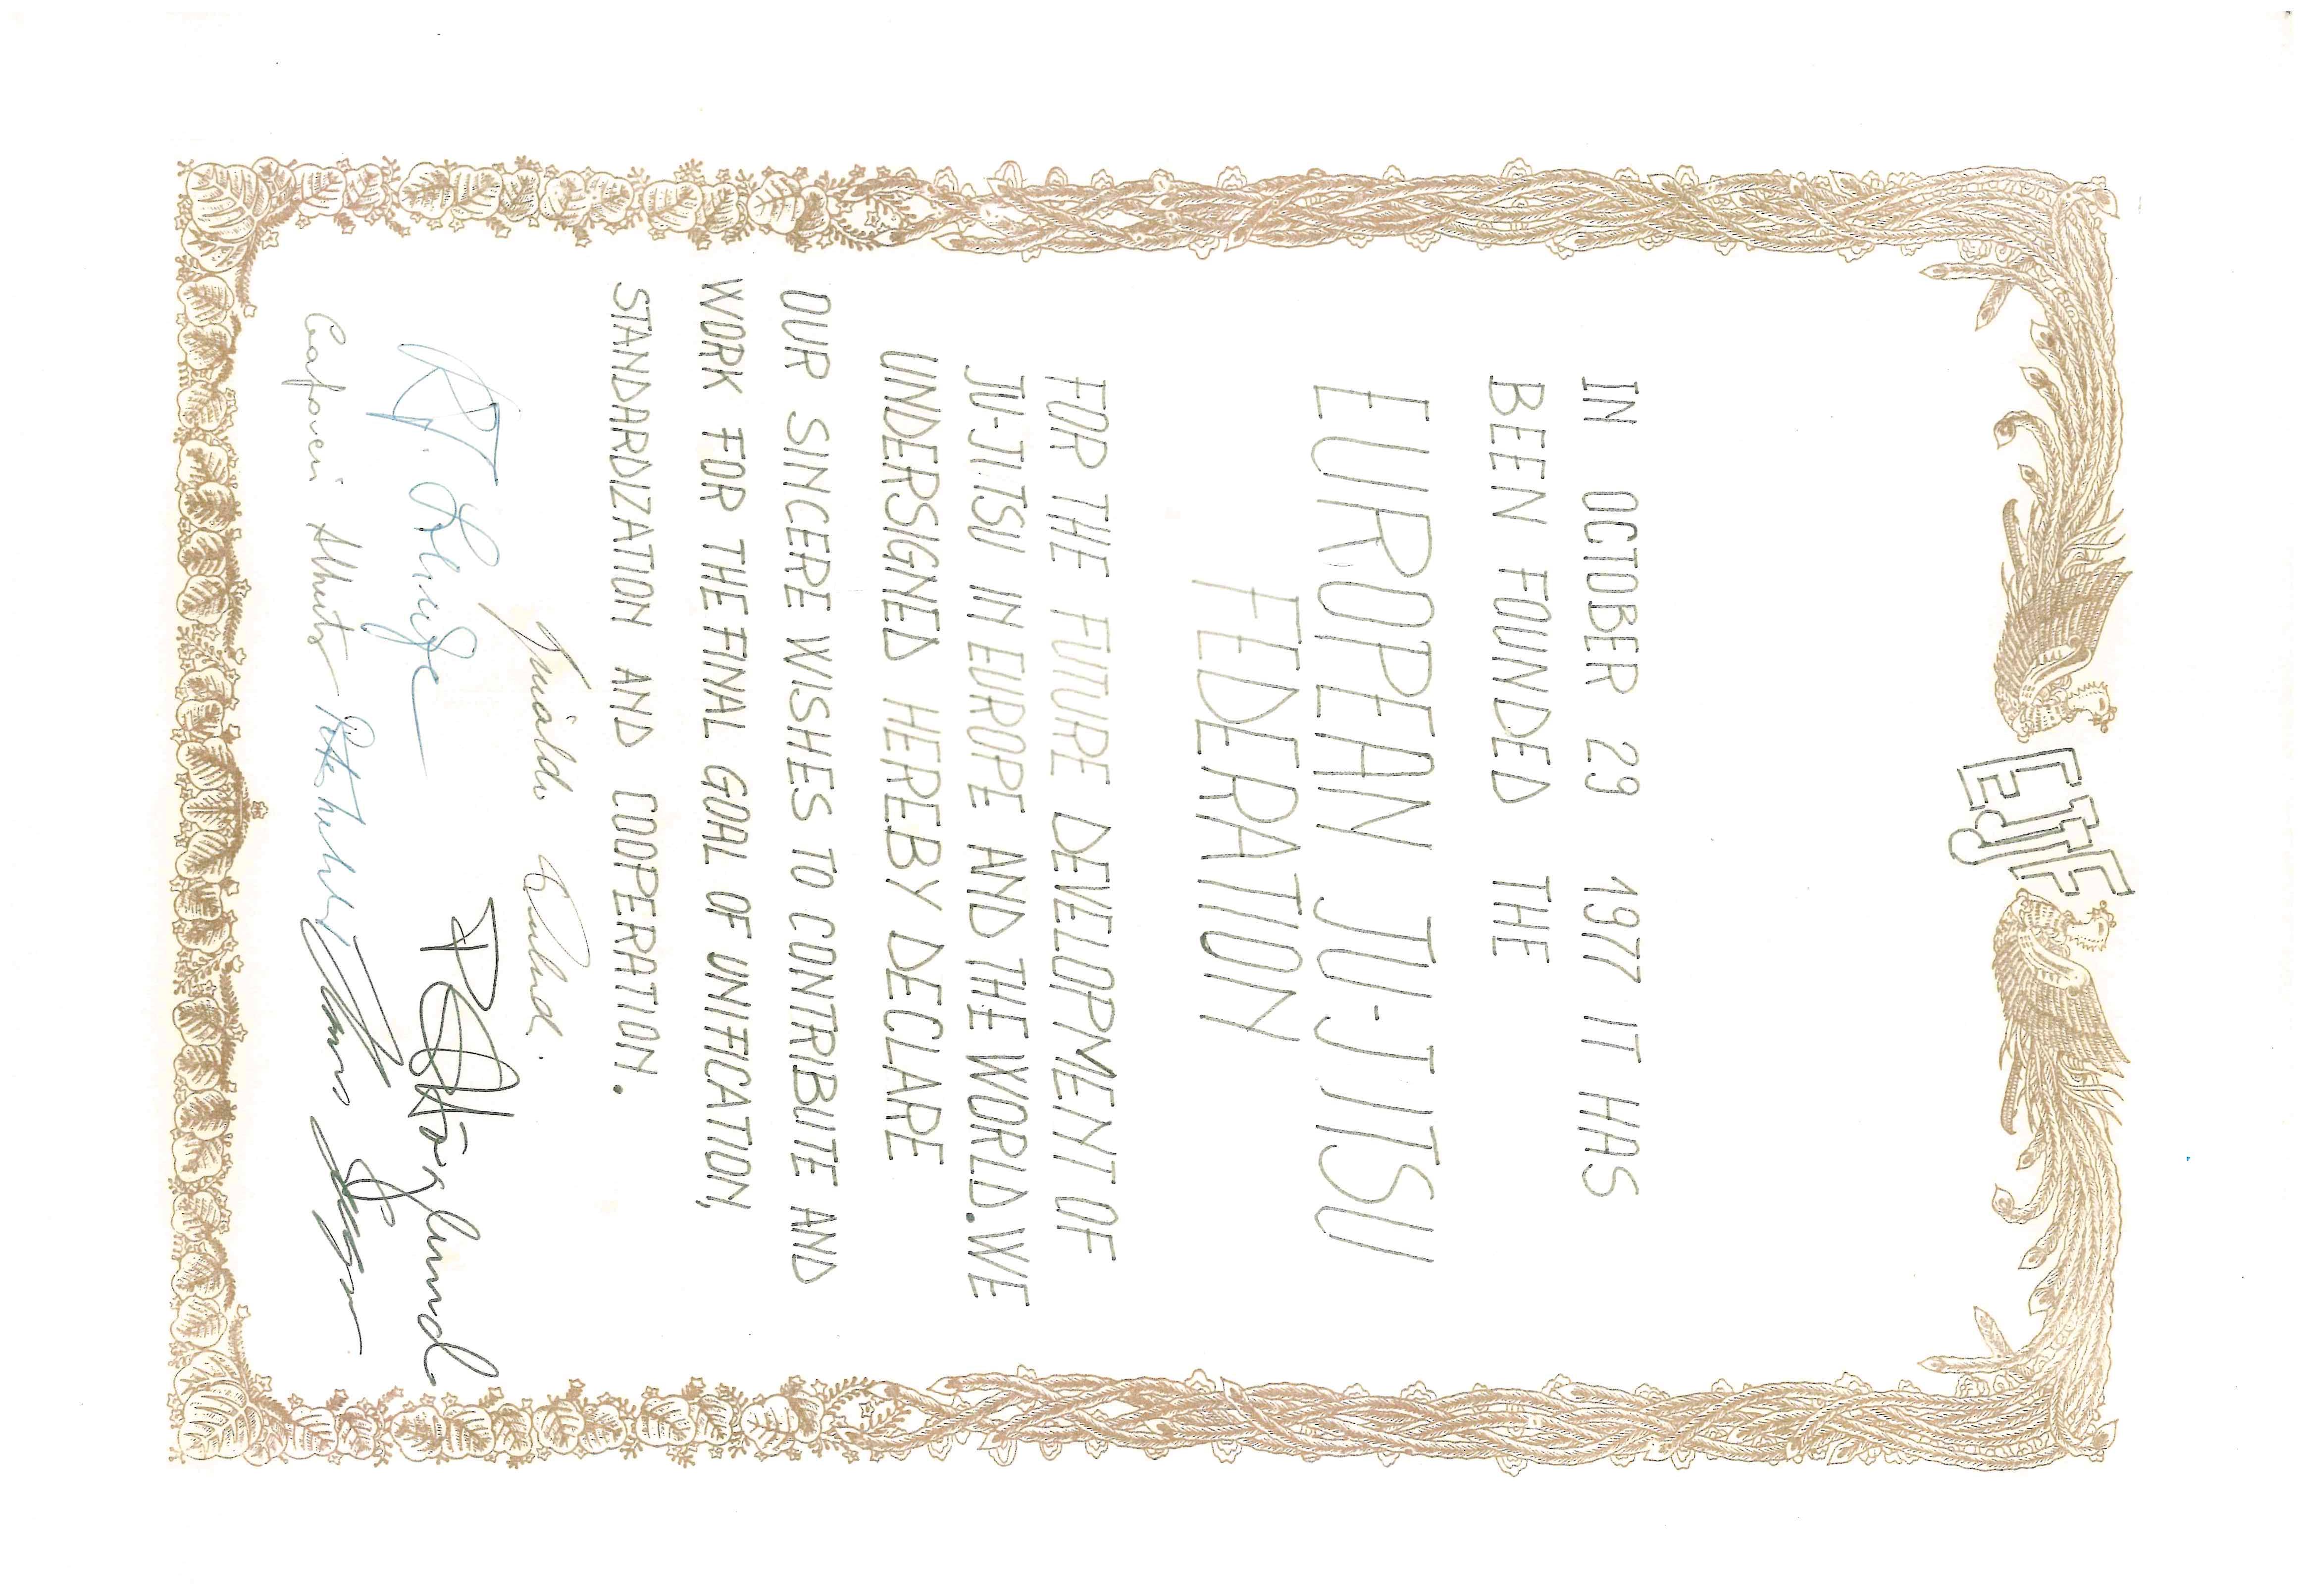 EJJF
IN OCTOBER 29 1977 IT HAS
BEEN FOUNDED THE
EUROPEAN JU-JITSU
FEDERATION
FOR THE FUTURE DEVELOPMENT OF
JU-JITSU IN EUROPE AND THE WORLD. WE
UNDERSIGNED HEREBY DECLARE
OUR SINCERE WISHES TO CONTRIBUTE AND
WORK FOR THE FINAL GOAL OF UNIFICATION,
STANDARDIZATION AND COOPERATION.